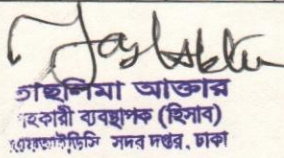 তাছলিমা আক্তার
সহকারী ব্যবস্থাপক (হিসাব)
সদর দপ্তর, ঢাকা